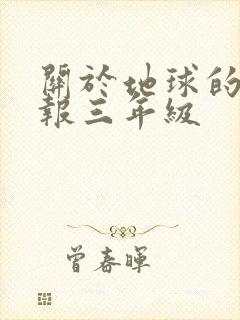 關於地球的
報三年級
曾春暉